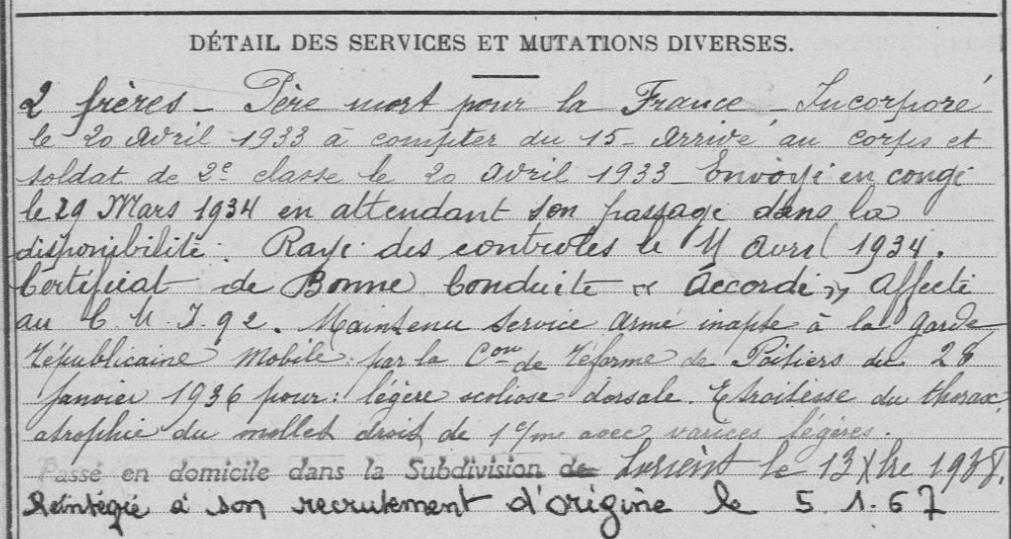 DÉTAIL DES SERVICES ET MUTATIONS DIVERSES.
2 frères - Père mort pour la France - Incorporé
le 20 avril 1933 à compter du 15 - Arrivé au corps et
soldat de 2e classe le 20 avril 1933 - Envoyé en congé
le 29 Mars 1934 en attendant son passage dans la
disponibilité. Rayé des controles le 11 avril 1934.
Certificat de Bonne Conduite « Accordé » Affecté
au C. M. I. 92. Maintenu service armé inapte à la garde
républicaine mobile par la Con de réforme de Poitiers du 28
janvier 1936 pour : légère scoliose dorsale. Etroitesse du thorax,
atrophie du mollet droit de 1 c/m avec varices légères.
Passé en domicile dans la Subdivision de Lorient le 13 Xbre 1938.
Réintégré à son recrutement d'origine le 5.1.67